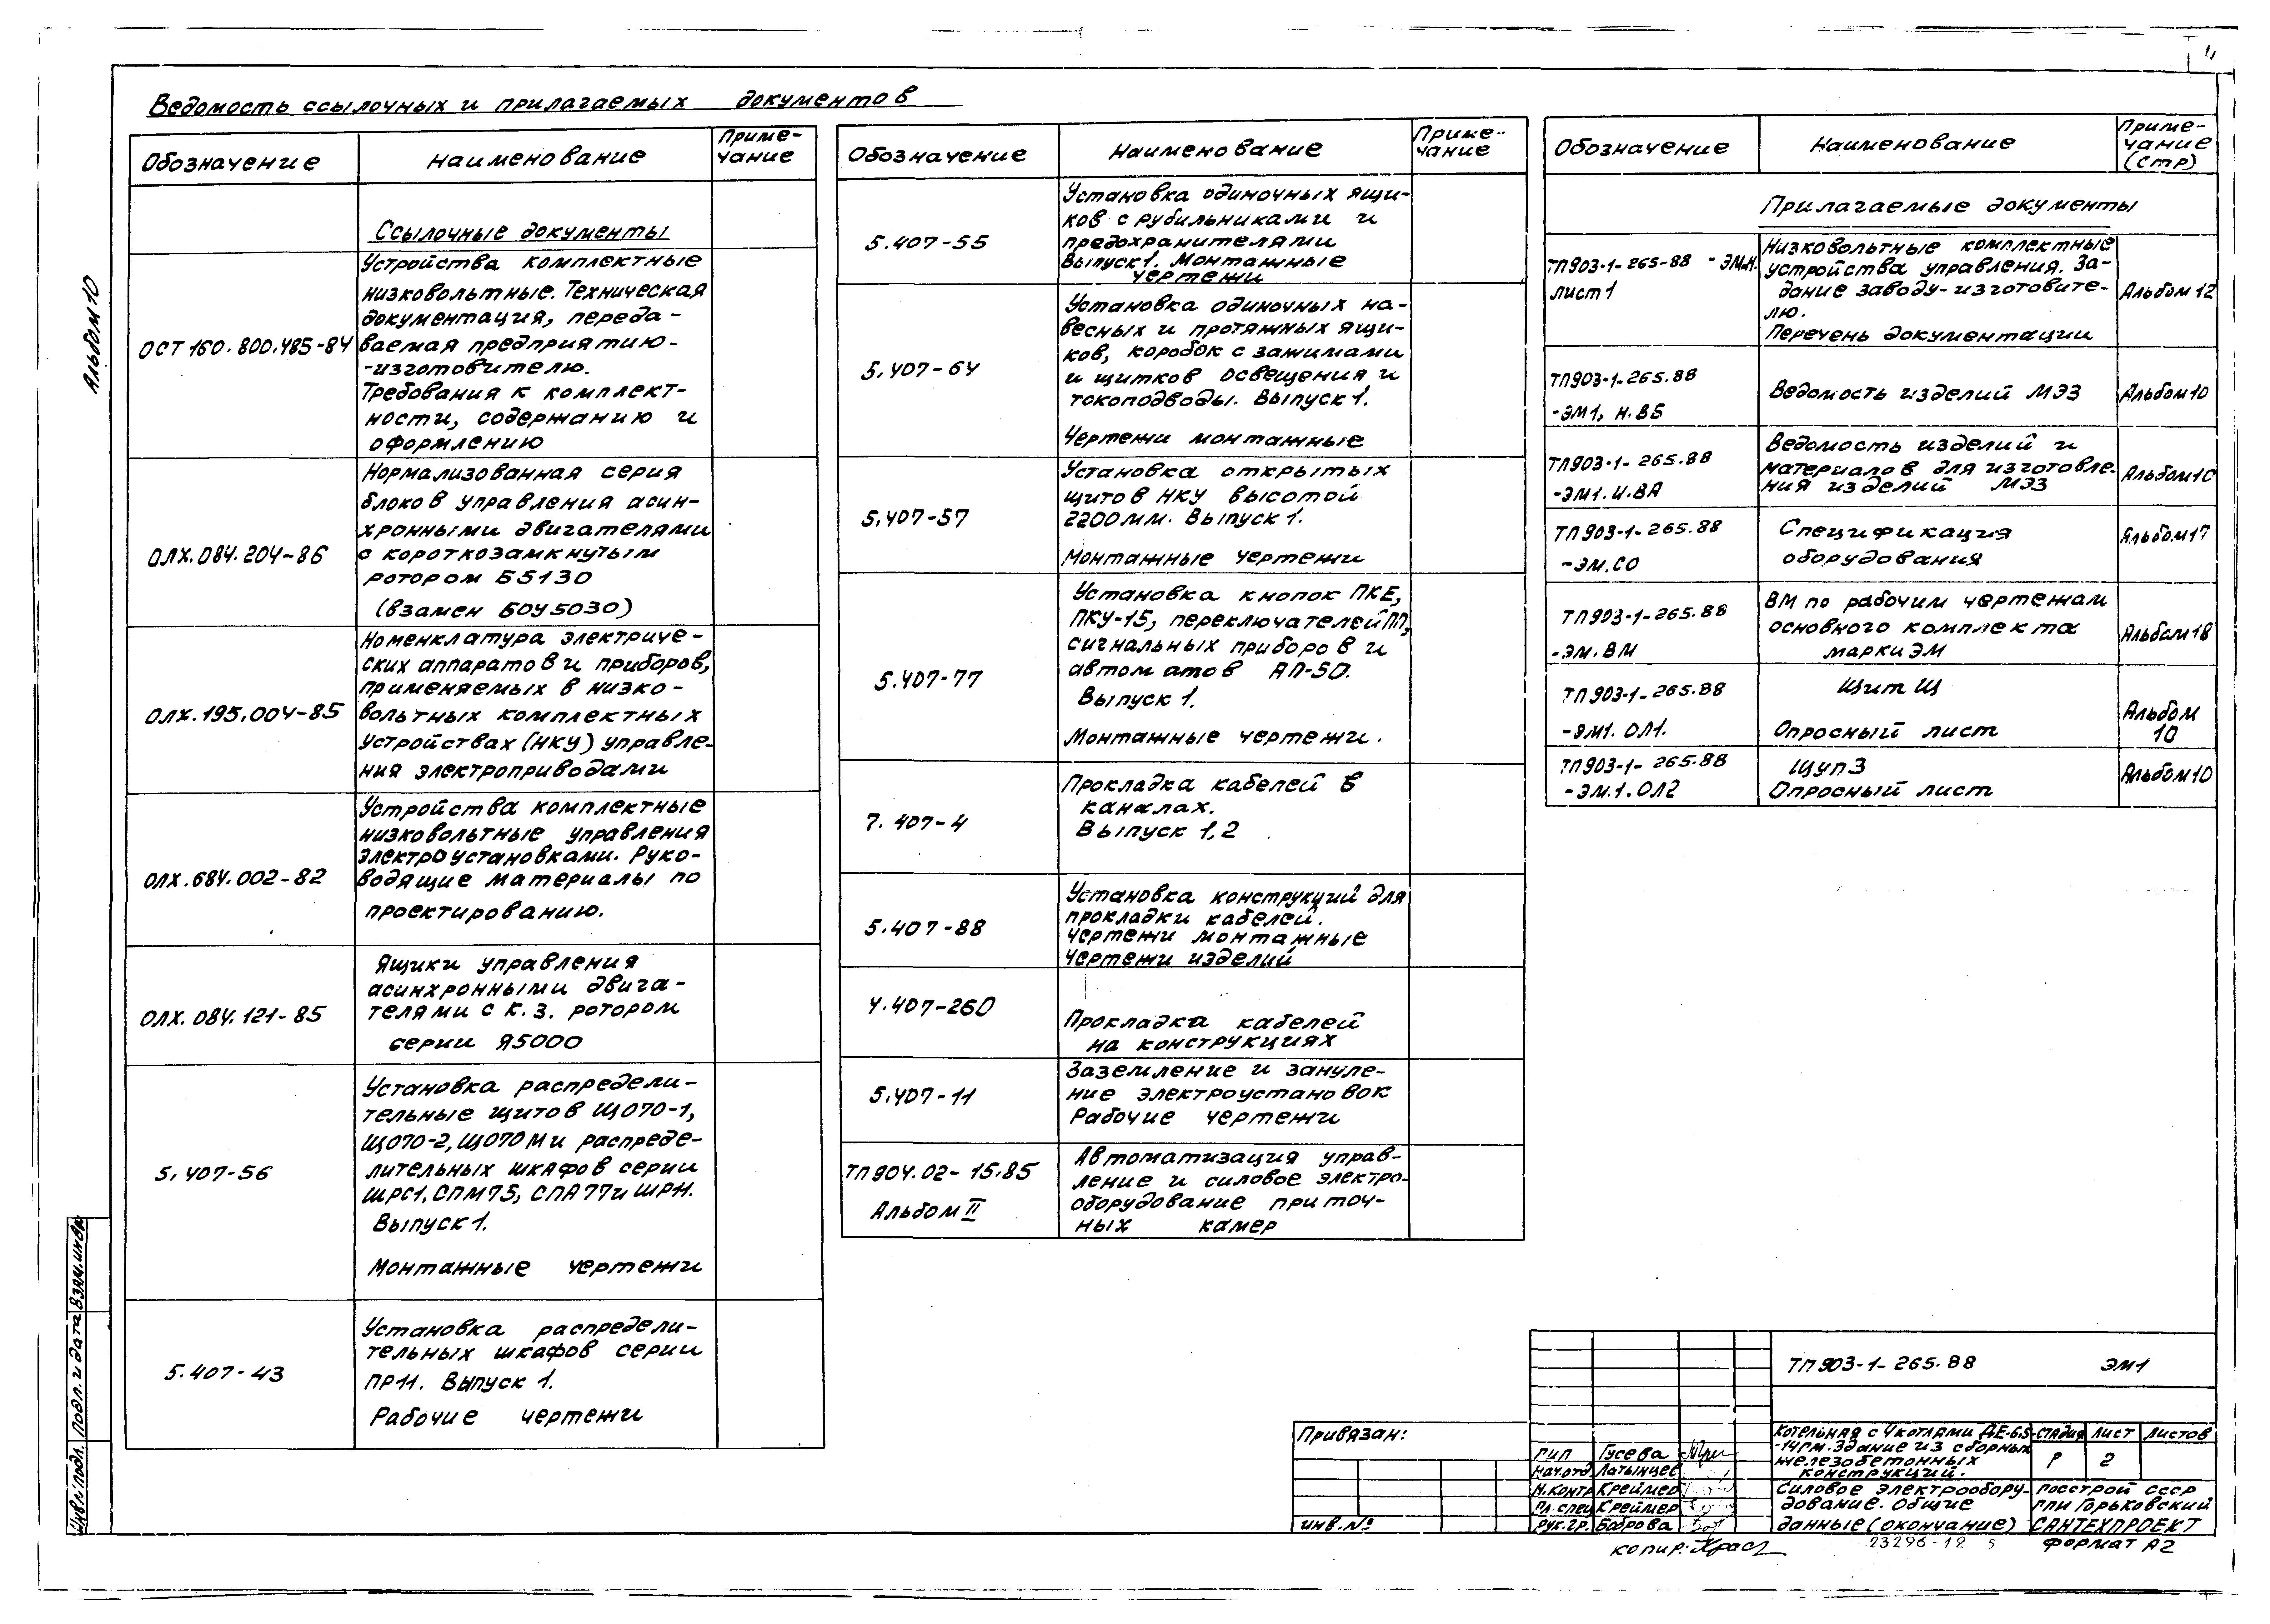 4
Ведомость ссылочных и прилагаемых документов
Альбом 10
Обозначение
Наименование
Приме-
чание
Ссылочные документы
ОСТ 160.800.485-84
Устройства комплектные
низковольтные. Техническая
документация, переда-
ваемая предприятию-
-изготовителю.
Требования к комплект-
ности, содержанию и
оформлению
ОЛХ.084.204-86
Нормализованная серия
блоков управления асин-
хронными двигателями
с короткозамкнутым
ротором Б5130
(взамен БОУ5030)
ОЛХ.195.004-85
Номенклатура электриче-
ских аппаратов и приборов,
применяемых в низко-
вольтных комплектных
устройствах (НКУ) управле-
ния электроприводами
ОЛХ.684.002-82
Устройства комплектные
низковольтные управления
электроустановками. Руко-
водящие материалы по
проектированию.
ОЛХ.084.121-85
Ящики управления
асинхронными двига-
телями с к.з. ротором
серии Я5000
5.407-56
Установка распредели-
тельные щитов ЩО70-1,
ЩО70-2, ЩО70М и распреде-
лительных шкафов серии
ШРС1, СПМ75, СПА77 и ШР11.
Выпуск 1.
Монтажные чертежи
5.407-43
Установка распредели-
тельных шкафов серии
ПР11. Выпуск 1.
Рабочие чертежи
Обозначение
Наименование
Приме-
чание
5.407-55
Установка одиночных ящи-
ков с рубильниками и
предохранителями
Выпуск 1. Монтажные
чертежи
5.407-64
Установка одиночных на-
весных и протяжных ящи-
ков, коробок с зажимами
и щитков освещения и
токоподводы. Выпуск 1.
Чертежи монтажные
5.407-57
Установка открытых
щитов НКУ высотой
2200мм. Выпуск 1.
Монтажные чертежи
5.407-77
Установка кнопок ПКЕ,
ПКУ-15, переключателей ПП,
сигнальных приборов и
автоматов АП-50.
Выпуск 1.
Монтажные чертежи.
7.407-4
Прокладка кабелей в
каналах.
Выпуск 1,2
5.407-88
Установка конструкций для
прокладки кабелей.
Чертежи монтажные
Чертежи изделий
4.407-260
Прокладка кабелей
на конструкциях
5.407-11
Заземление и зануле-
ние электроустановок
Рабочие чертежи
ТП 904.02-15.85
Альбом II
Автоматизация управ-
ление и силовое электро-
оборудование приточ-
ных камер
Обозначение
Наименование
Приме-
чание
(стр)
Прилагаемые документы
ТП903-1-265-88 -ЭМ.Н.
лист 1
Низковольтные комплектные
устройства управления. За-
дание заводу-изготовите-
лю.
Перечень документации
Альбом 12
ТП903-1-265.88
-ЭМ1, Н.ВБ
Ведомость изделий МЭЗ
Альбом 10
ТП903-1-265.88
-ЭМ1.И.ВА
Ведомость изделий и
материалов для изготовле-
ния изделий МЭЗ
Альбом 10
ТП903-1-265.88
-ЭМ.СО
Спецификация
оборудования
Альбом 17
ТП903-1-265.88
-ЭМ.ВМ
ВМ по рабочим чертежам
основного комплекта
марки ЭМ
Альбом 18
ТП903-1-265.88
-ЭМ1.ОЛ1.
Щит Щ
Опросный лист
Альбом
10
ТП903-1-265.88
-ЭМ.1.ОЛ2
Щуп3
Опросный лист
Альбом 10
Инв.№подл. Подл. и дата Взам.инв№
Привязан:
Инв.№
ГИП Гусева
Нач.отд Латынцев
Н.контр Креймер
Гл.спец Креймер
Рук.гр. Боброва
ТП903-1-265.88 ЭМ1
Котельная с 4 котлами ДЕ-6.5-
-14ГМ. Здание из сборных
железобетонных
конструкций.
Стадия Лист Листов
Р 2
Силовое электрообору-
дование. Общие
данные (окончание)
Госстрой СССР
ГПИ Горьковский
САНТЕХПРОЕКТ
Копир:
23296-12 5
Формат А2